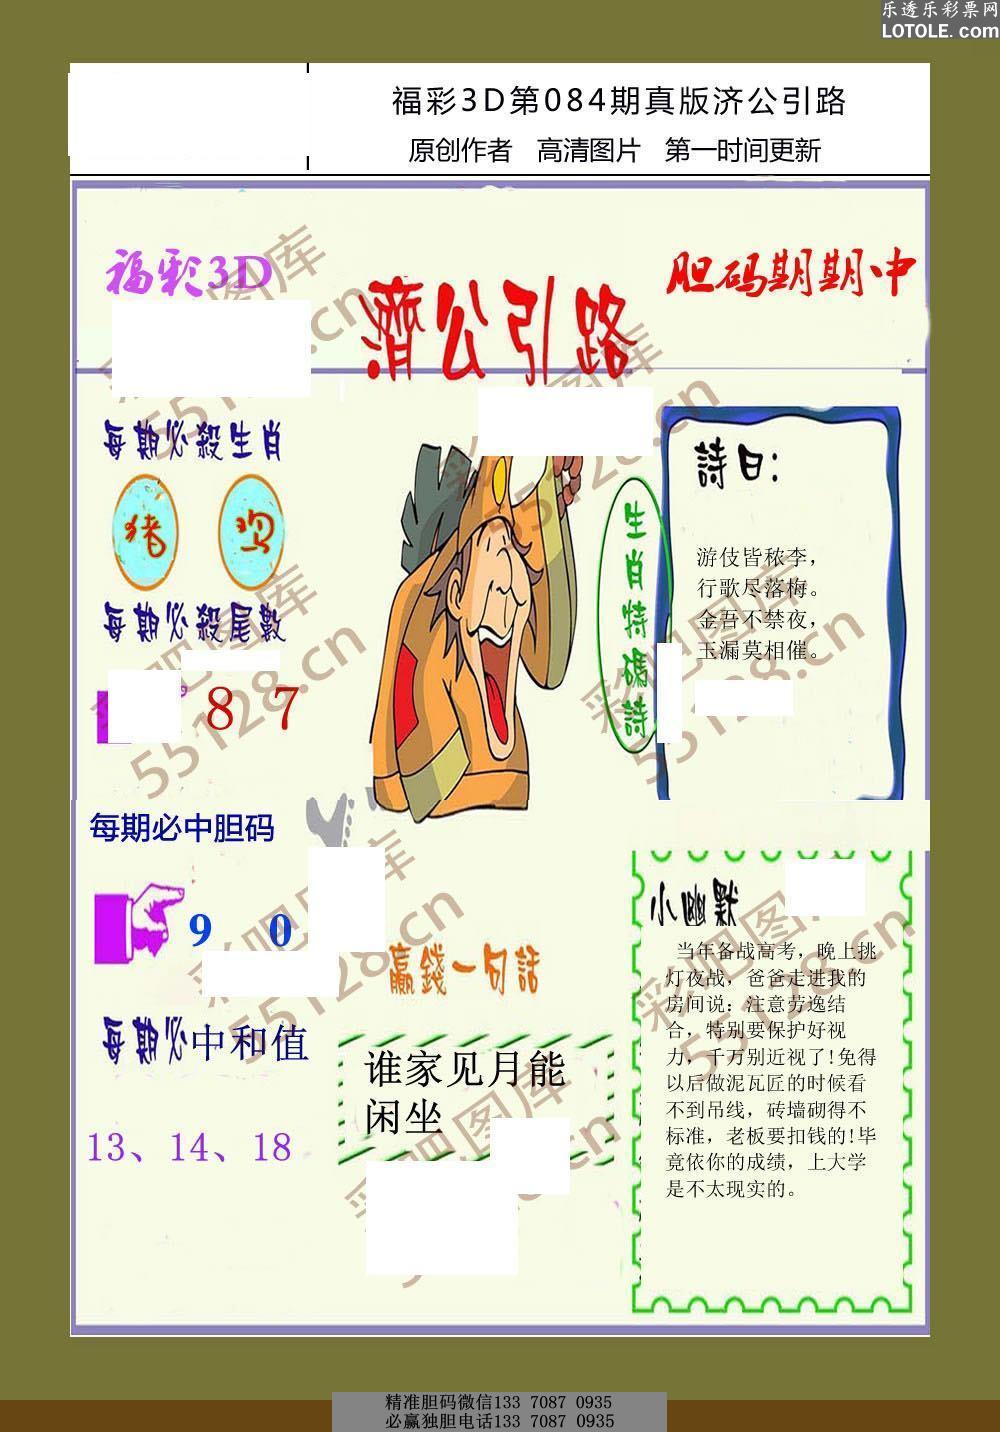 乐透乐彩票网
LOTOLE.com
福彩3D第084期真版济公引路
原创作者 高清图片 第一时间更新
福彩3D
濟公引路
胆码期期中
每期必殺生肖
猪 鸡
每期必殺尾數
8 7
每期必中胆码
9 0
每期必中和值
13、14、18
生肖特碼詩
詩曰:
游伎皆秾李，
行歌尽落梅。
金吾不禁夜，
玉漏莫相催。
贏錢一句話
谁家见月能
闲坐
小幽默
当年备战高考，晚上挑
灯夜战，爸爸走进我的
房间说：注意劳逸结
合，特别要保护好视
力，千万别近视了!免得
以后做泥瓦匠的时候看
不到吊线，砖墙砌得不
标准，老板要扣钱的!毕
竟依你的成绩，上大学
是不太现实的。
彩吧图库
55128.cn
精准胆码微信133 7087 0935
必赢独胆电话133 7087 0935